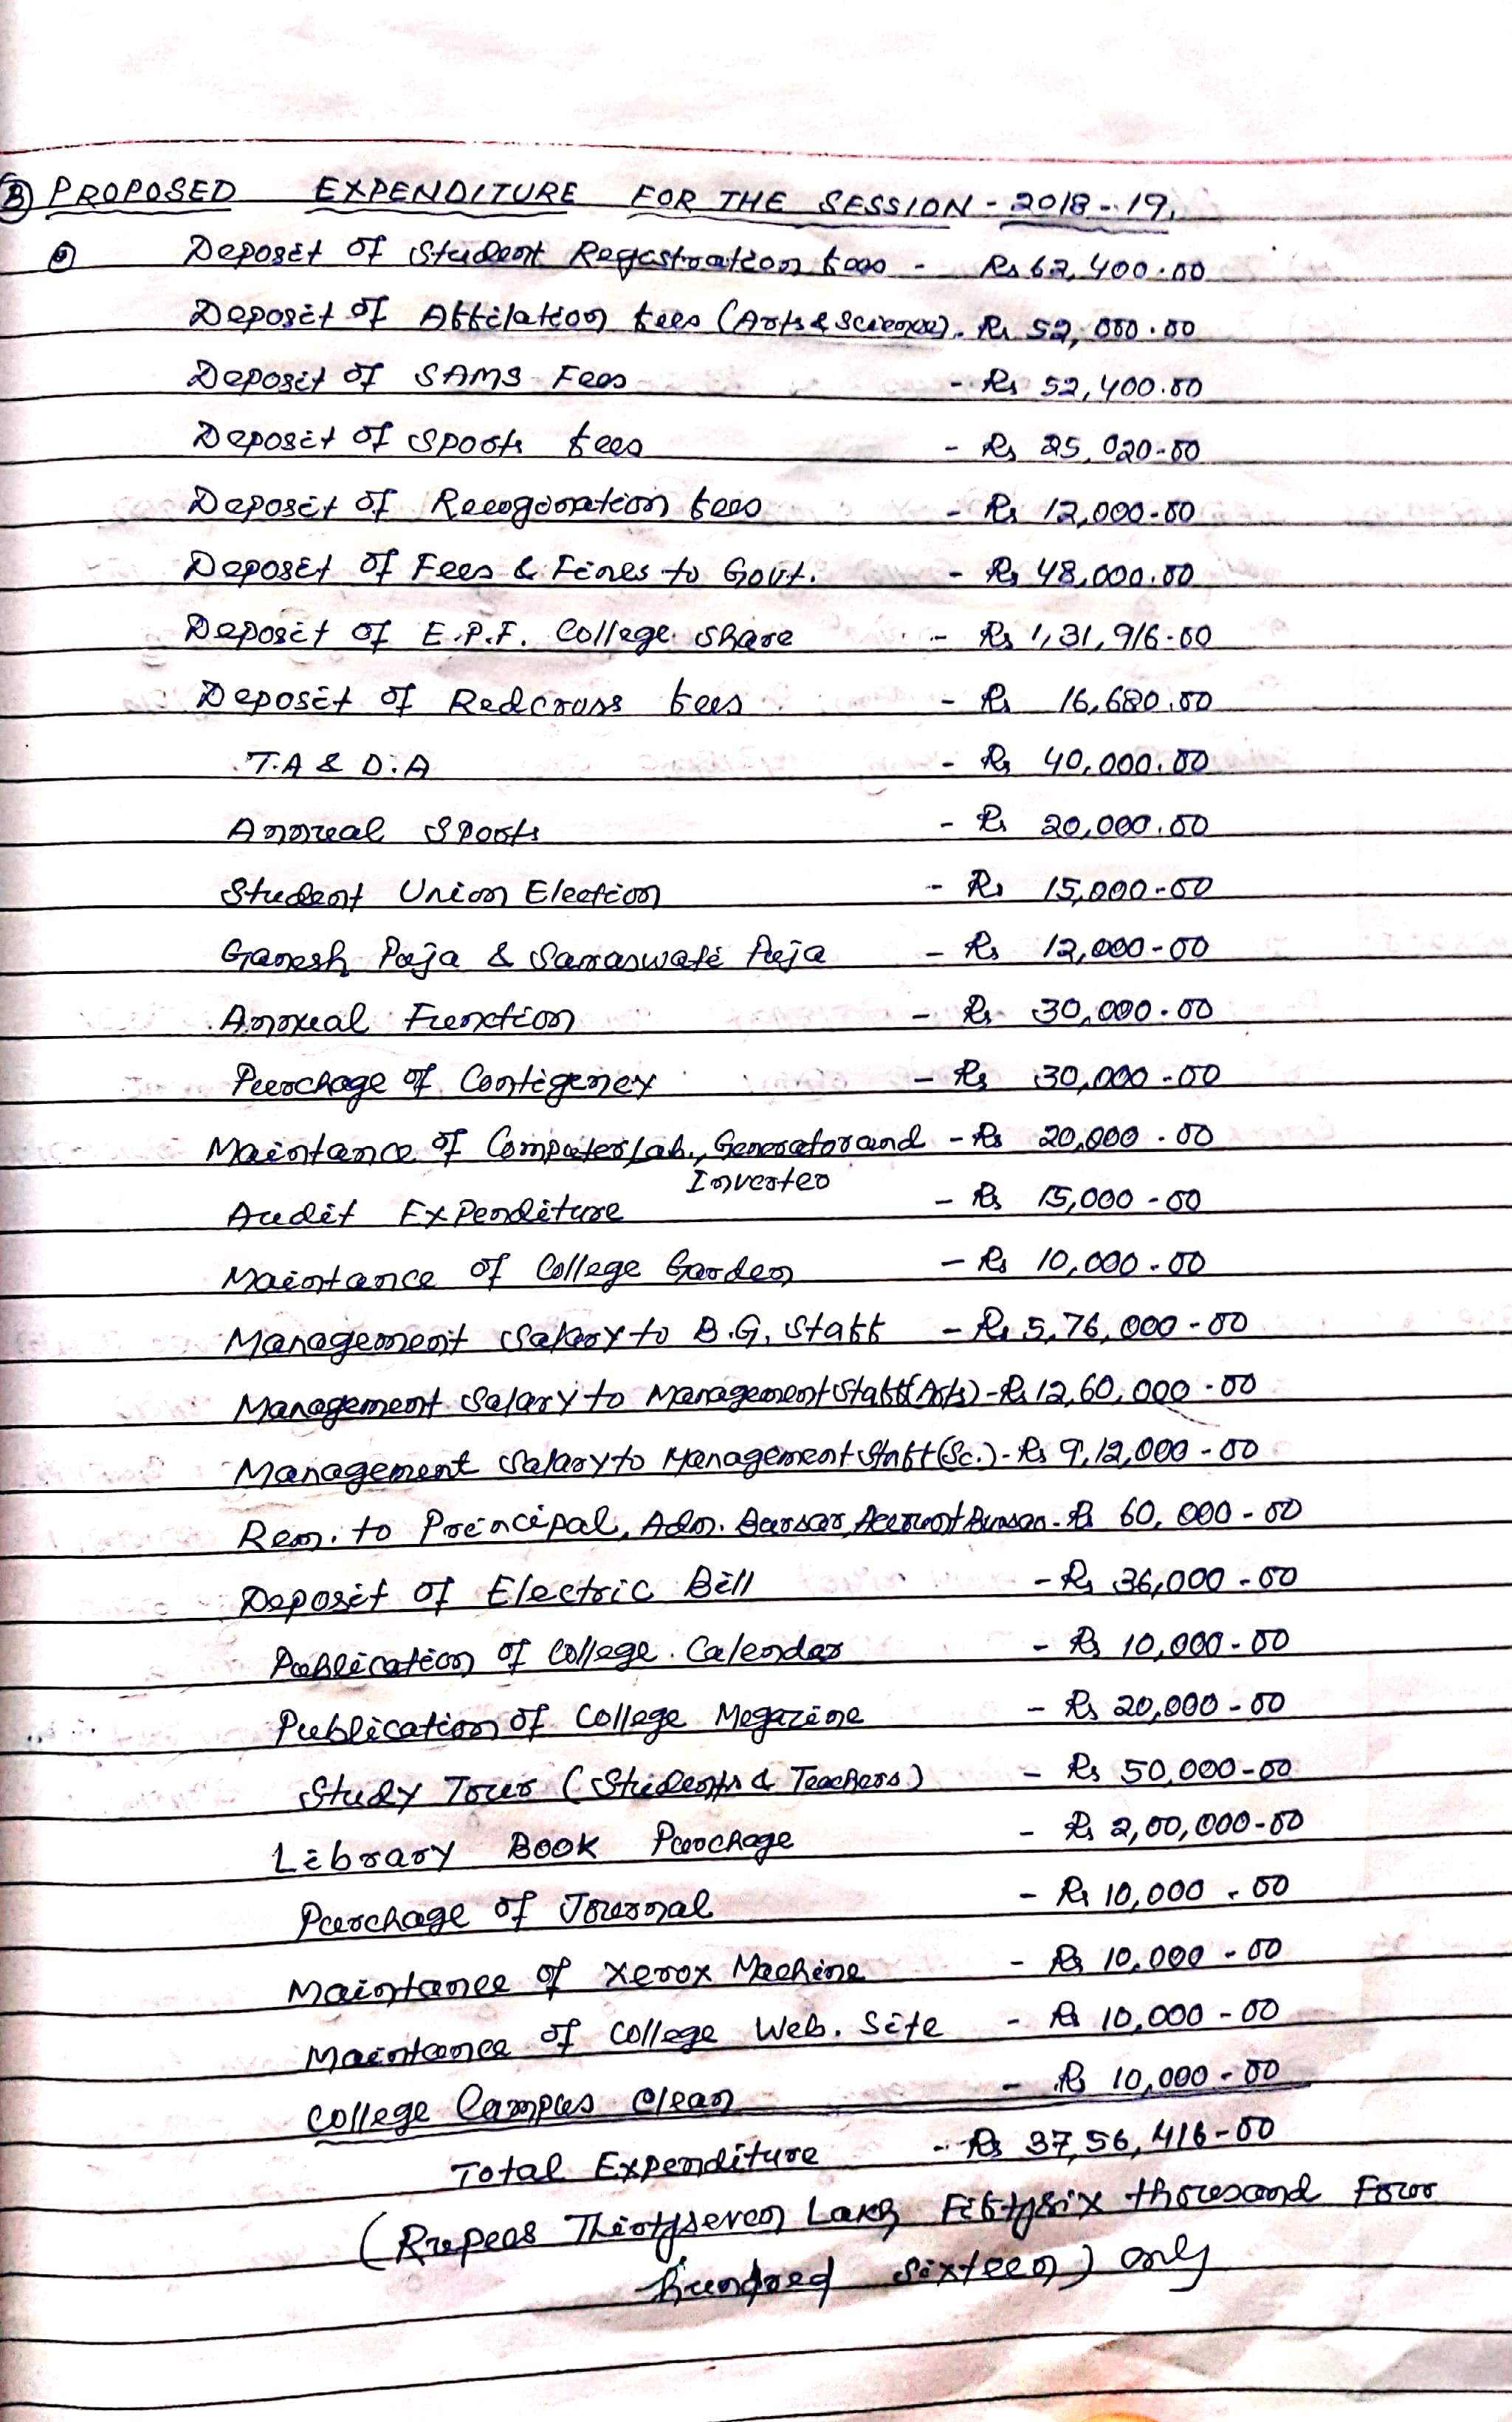 (B) PROPOSED EXPENDITURE FOR THE SESSION - 2018-19.
Deposit of Student Registration fees - Rs 62,400.00
Deposit of Affilation fees (Arts & Science). Rs 52,000.00
Deposit of SAMS Fees - Rs 52,400.00
Deposit of Sports fees - Rs 25,020-00
Deposit of Recognation fees - Rs 12,000-00
Deposit of Fees & Fines to Govt. - Rs 48,000.00
Deposit of E.P.F. College share - Rs 1,31,916-00
Deposit of Redcross fees - Rs 16,680.00
T.A & D.A - Rs 40,000.00
Annual Sports - Rs 20,000.00
Student Union Election - Rs 15,000-00
Ganesh Puja & Saraswati Puja - Rs 12,000-00
Annual Function - Rs 30,000.00
Purchage of Contigency - Rs 30,000-00
Maintance of Computer Lab., Generator and - Rs 20,000.00
Inverter
Audit Expenditure - Rs 15,000-00
Maintance of College Garden - Rs 10,000-00
Management Salary to B.G. Staff - Rs 5,76,000-00
Management Salary to Management Staff (Arts) - Rs 12,60,000-00
Management Salary to Management Staff (Sc.) - Rs 9,12,000-00
Rem. to Principal, Adm. Bursar, Account Bursar - Rs 60,000-00
Deposit of Electric Bill - Rs 36,000-00
Publication of College Calendar - Rs 10,000-00
Publication of College Megazine - Rs 20,000-00
Study Tour (Students & Teachers) - Rs 50,000-00
Library Book Purchage - Rs 2,00,000-00
Purchage of Journal - Rs 10,000-00
Maintance of Xerox Machine - Rs 10,000-00
Maintance of College Web. Site - Rs 10,000-00
College Campus Clean - Rs 10,000-00
Total Expenditure - Rs 37,56,416-00
(Rupees Thirtyseven Lakh Fiftysix thousand Four
hundred sixteen) only